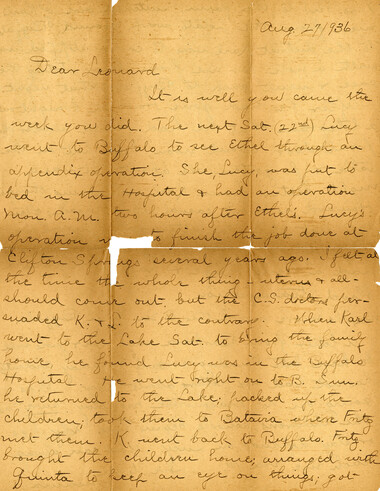 Aug. 27/936
Dear Leonard
It is well you came the
week you did. The next Sat. (22nd) Lucy
went to Buffalo to see Ethel through an
appendix operation. She, Lucy, was put to
bed in the Hospital & had an operation
Mon. A.M. two hours after Ethel's. Lucy's
operation to finish the job done at
Clifton Springs several years ago. I felt at
the time the whole thing - uterus & all -
should come out, but the C.S. doctors per-
suaded K. & L. to the contrary. When Karl
went to the Lake Sat. to bring the family
home, he found Lucy was in the Buffalo
Hospital. went right on to B. Sun.
he returned to the Lake; packed up the
children; took them to Batavia where Fritz
met them. K. went back to Buffalo. Fritz
brought the children home; arranged with
Quinta to keep an eye on things; got